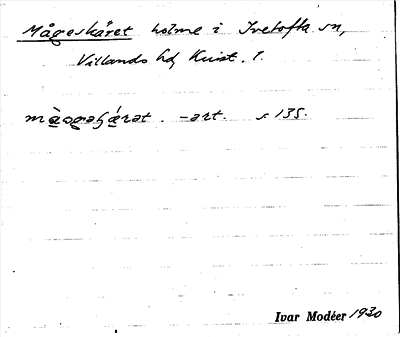 Mågeskäret holme i Ivetofta sn,
Villands hd, Krist. l.
-ərt. s 135.
Ivar Modéer 1930